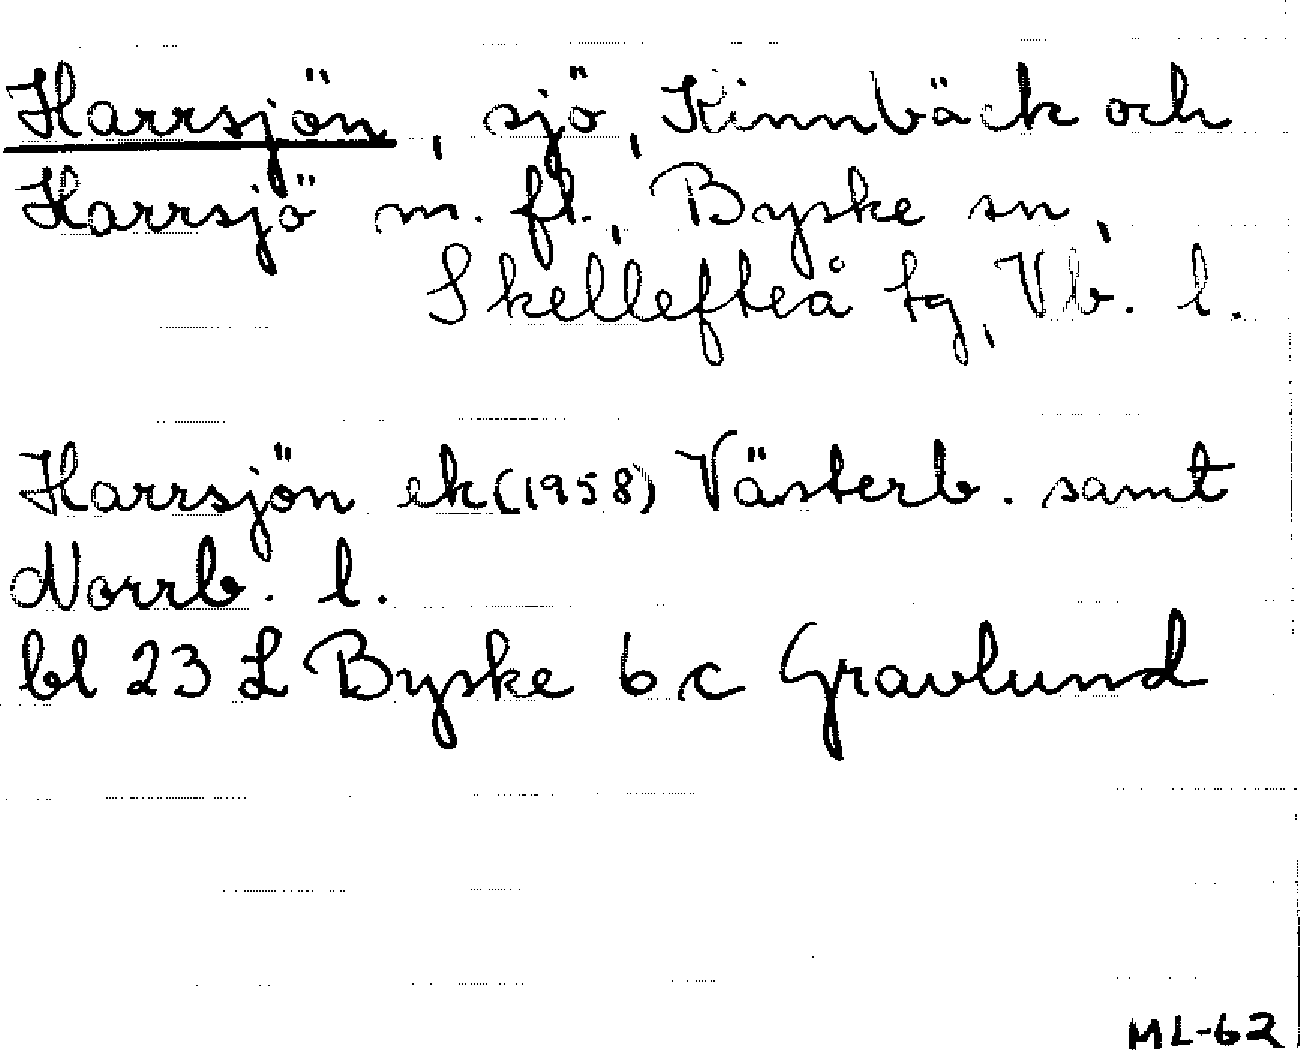 Harrsjön, sjö, Kinnbäck och
Harrsjö m. fl., Byske sn,
Skellefteå tg, Vb. l.
Harrsjön ek (1958) Västerb. samt
Norrb. l.
bl 23 L Byske 6 c Gravlund
ML-62